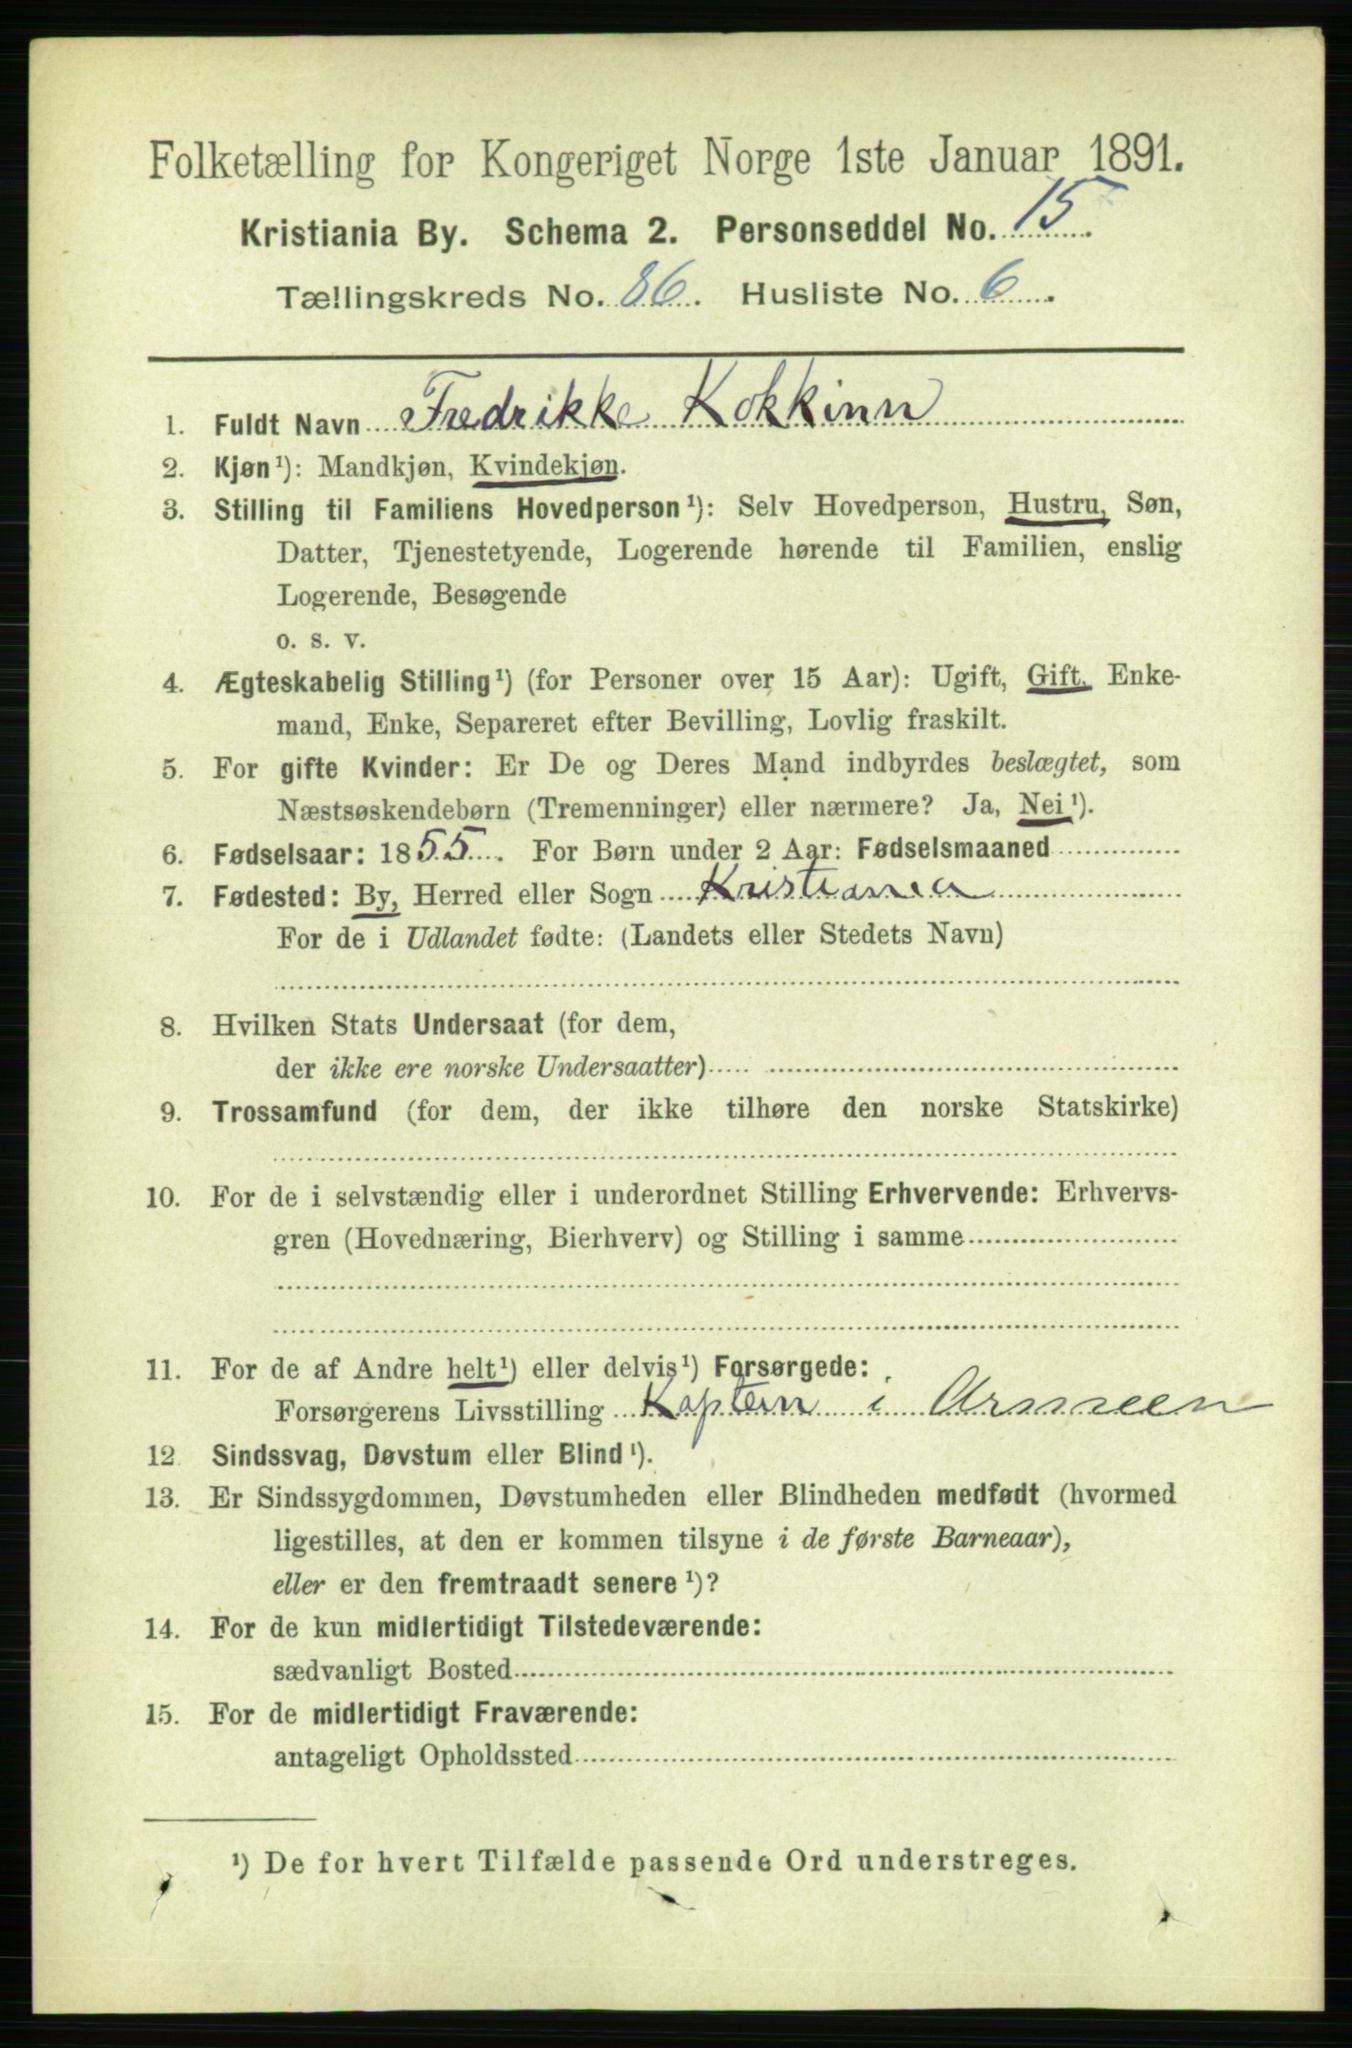 Folketælling for Kongeriget Norge 1ste Januar 1891.
Kristiania By. Schema 2. Personseddel No. 15.
Tællingskreds No. 86. Husliste No. 6.
1. Fuldt Navn Fredrikke Kokkinn
2. Kjøn¹): Mandkjøn, Kvindekjøn.
3. Stilling til Familiens Hovedperson¹): Selv Hovedperson, Hustru, Søn,
Datter, Tjenestetyende, Logerende hørende til Familien, enslig
Logerende, Besøgende
o. s. v.
4. Ægteskabelig Stilling¹) (for Personer over 15 Aar): Ugift, Gift, Enke-
mand, Enke, Separeret efter Bevilling, Lovlig fraskilt.
5. For gifte Kvinder: Er De og Deres Mand indbyrdes beslægtet, som
Næstsøskendebørn (Tremenninger) eller nærmere? Ja, Nei¹).
6. Fødselsaar: 1855. For Børn under 2 Aar: Fødselsmaaned
7. Fødested: By, Herred eller Sogn Kristiania
For de i Udlandet fødte: (Landets eller Stedets Navn)
8. Hvilken Stats Undersaat (for dem,
der ikke ere norske Undersaatter)
9. Trossamfund (for dem, der ikke tilhøre den norske Statskirke)
10. For de i selvstændig eller i underordnet Stilling Erhvervende: Erhvervs-
gren (Hovednæring, Bierhverv) og Stilling i samme
11. For de af Andre helt¹) eller delvis¹) Forsørgede:
Forsørgerens Livsstilling Kaptein i Armeen
12. Sindssvag, Døvstum eller Blind¹).
13. Er Sindssygdommen, Døvstumheden eller Blindheden medfødt (hvormed
ligestilles, at den er kommen tilsyne i de første Barneaar),
eller er den fremtraadt senere¹)?
14. For de kun midlertidigt Tilstedeværende:
sædvanligt Bosted
15. For de midlertidigt Fraværende:
antageligt Opholdssted
¹) De for hvert Tilfælde passende Ord understreges.